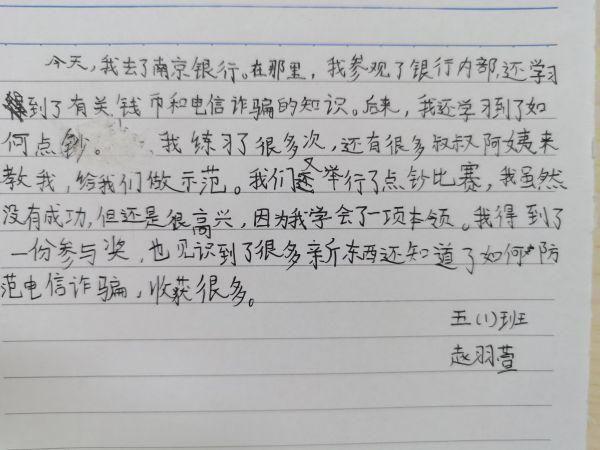 今天,我去了南京银行。在那里,我参观了银行内部,还学习
得到了有关钱币和电信诈骗的知识。后来,我还学习到了如
何点钞。我练习了很多次,还有很多叔叔阿姨来
教我,给我们做示范。我们又举行了点钞比赛,我虽然
没有成功,但还是很高兴,因为我学会了一项本领。我得到了
一份参与奖,也见识到了很多新东西还知道了如何防
范电信诈骗,收获很多。
五(1)班
赵羽萱